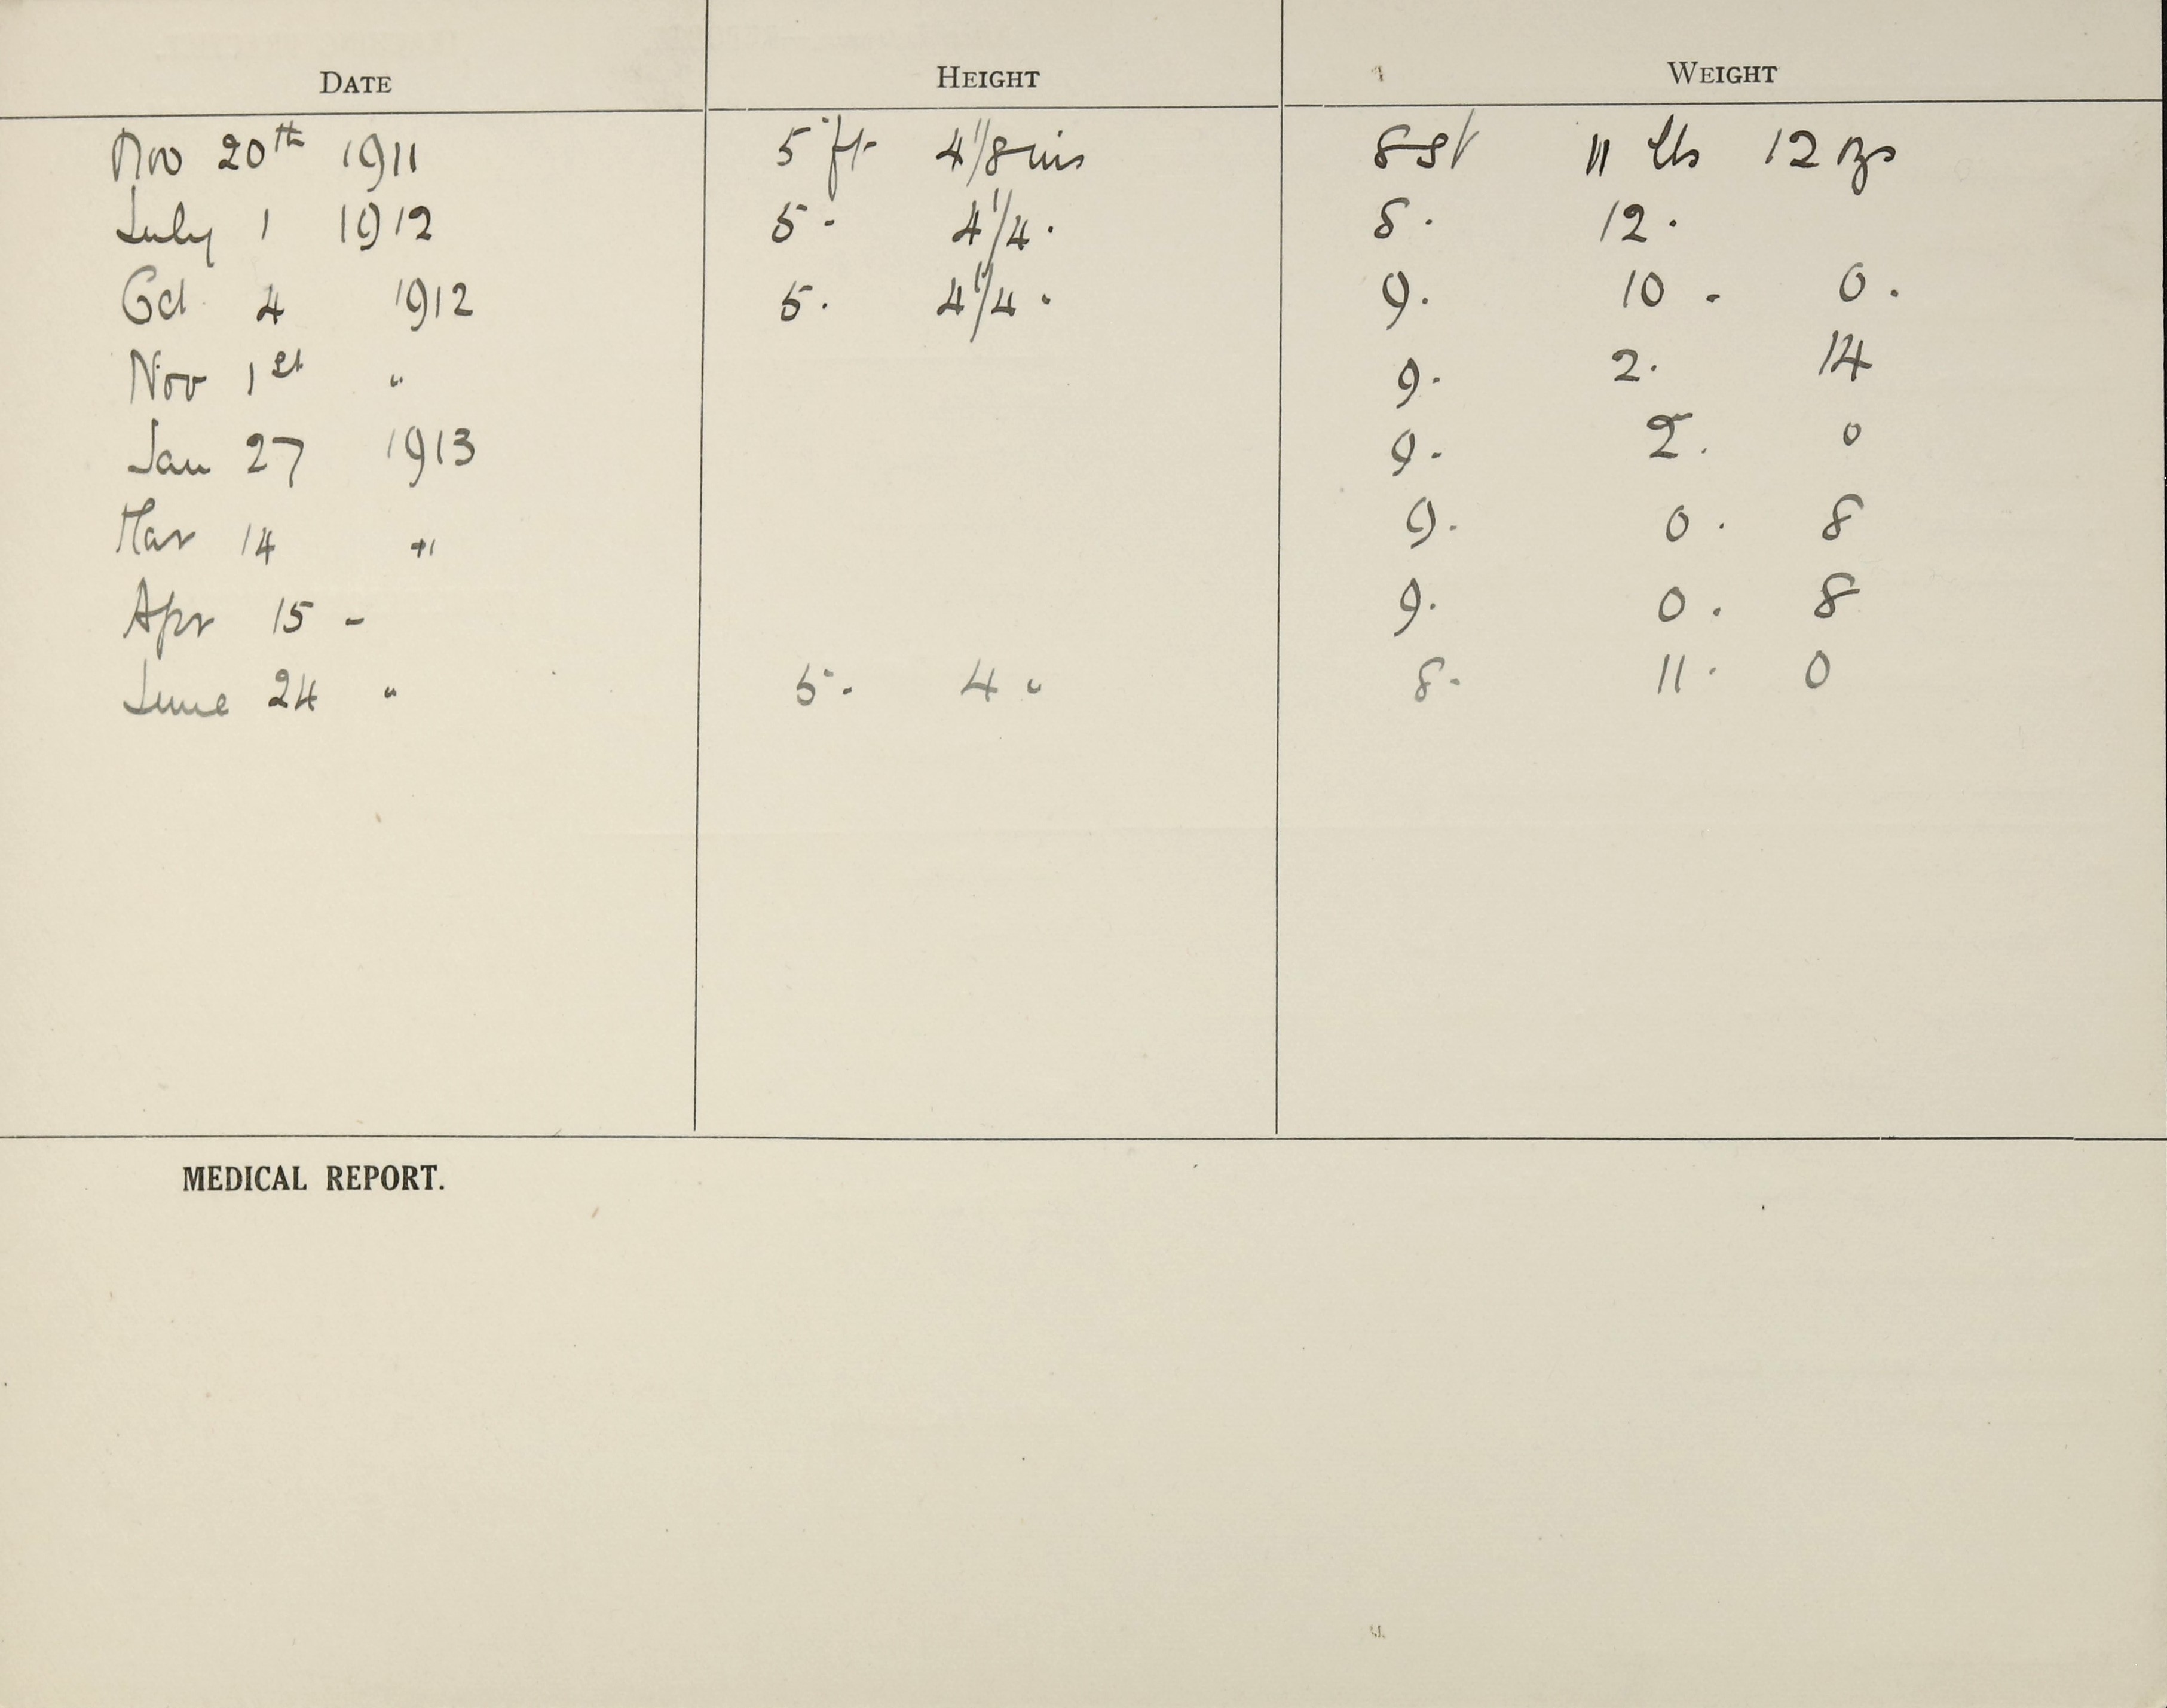 DATE HEIGHT WEIGHT
Nov 20th 1911 5 ft 4 1/8 ins 8 st 11 lbs 12 ozs
July 1 1912 5 - 4 1/4 . 8 . 12 .
Oct 4 1912 5 . 4 1/4 " 9 . 10 - 0 .
Nov 1st " 9 . 2 . 14
Jan 27 1913 9 . 2 . 0
Mar 14 " 9 . 0 . 8
Apr 15 - 9 . 0 . 8
June 24 " 5 - 4 " 8 - 11 . 0
MEDICAL REPORT.